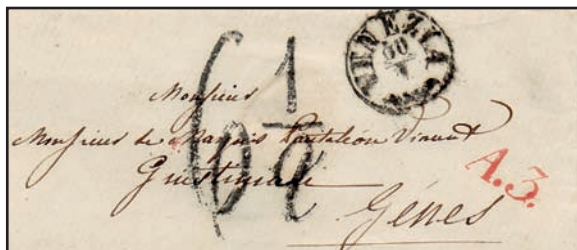 VENEZIA
30
V
6 1/2
Monsieur
Monsieur de Marquis Pantaléon Vincent
Gênes
A.3.